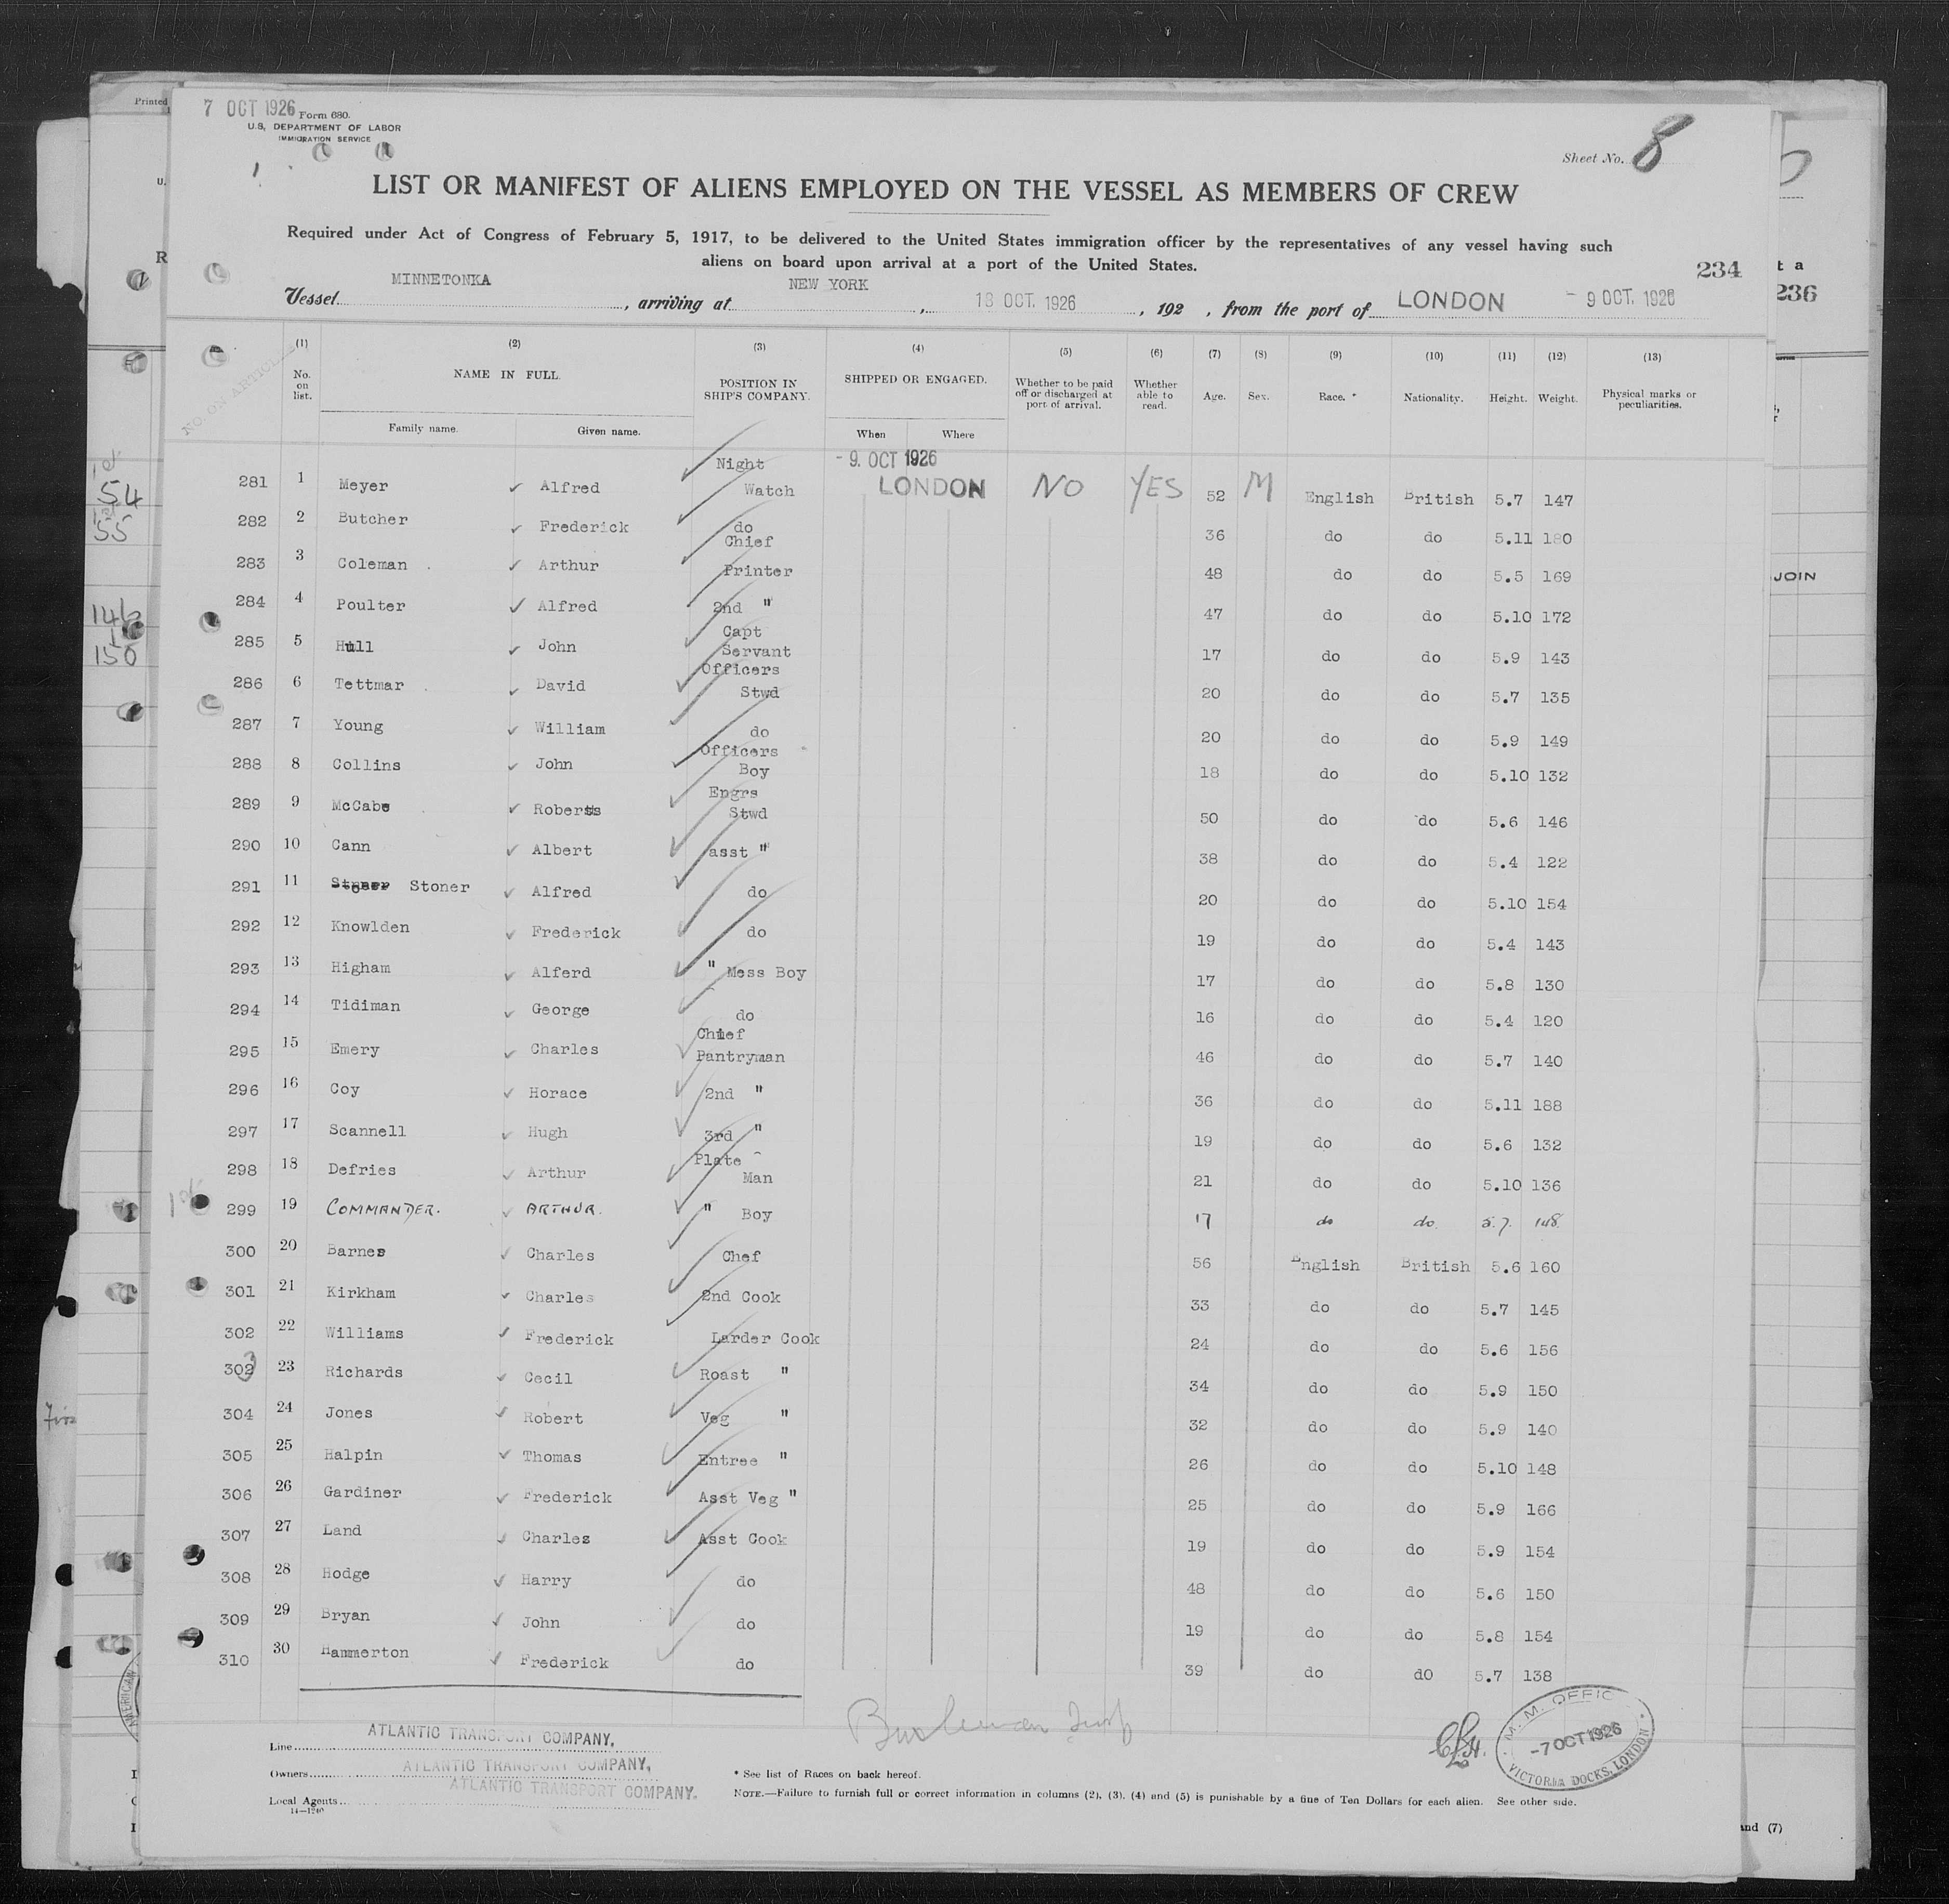 7 OCT 1926 Form 680.
U.S. DEPARTMENT OF LABOR
IMMIGRATION SERVICE
Sheet No. 8
LIST OR MANIFEST OF ALIENS EMPLOYED ON THE VESSEL AS MEMBERS OF CREW
Required under Act of Congress of February 5, 1917, to be delivered to the United States immigration officer by the representatives of any vessel having such
aliens on board upon arrival at a port of the United States.
234
Vessel MINNETONKA, arriving at NEW YORK, 18 OCT. 1926, 192 , from the port of LONDON - 9 OCT. 1926
NO. ON ARTICLES
(1) (2) (3) (4) (5) (6) (7) (8) (9) (10) (11) (12) (13)
No. on list. NAME IN FULL. POSITION IN SHIP'S COMPANY. SHIPPED OR ENGAGED. Whether to be paid off or discharged at port of arrival. Whether able to read. Age. Sex. Race. * Nationality. Height. Weight. Physical marks or peculiarities.
Family name. Given name. When Where
281 1 Meyer Alfred Night Watch - 9. OCT 1926 LONDON NO YES 52 M English British 5.7 147
282 2 Butcher Frederick do 36 do do 5.11 180
283 3 Coleman Arthur Chief Printer 48 do do 5.5 169
284 4 Poulter Alfred 2nd " 47 do do 5.10 172
285 5 Hull John Capt Servant 17 do do 5.9 143
286 6 Tettmar David Officers Stwd 20 do do 5.7 135
287 7 Young William do 20 do do 5.9 149
288 8 Collins John Officers Boy 18 do do 5.10 132
289 9 McCabe Roberts Engrs Stwd 50 do do 5.6 146
290 10 Cann Albert asst " 38 do do 5.4 122
291 11 Stoner Alfred do 20 do do 5.10 154
292 12 Knowlden Frederick do 19 do do 5.4 143
293 13 Higham Alferd " Mess Boy 17 do do 5.8 130
294 14 Tidiman George do 16 do do 5.4 120
295 15 Emery Charles Chief Pantryman 46 do do 5.7 140
296 16 Coy Horace 2nd " 36 do do 5.11 188
297 17 Scannell Hugh 3rd " 19 do do 5.6 132
298 18 Defries Arthur Plate Man 21 do do 5.10 136
299 19 COMMANDER. ARTHUR. " Boy 17 do do. 5.7. 148.
300 20 Barnes Charles Chef 56 English British 5.6 160
301 21 Kirkham Charles 2nd Cook 33 do do 5.7 145
302 22 Williams Frederick Larder Cook 24 do do 5.6 156
303 23 Richards Cecil Roast " 34 do do 5.9 150
304 24 Jones Robert Veg " 32 do do 5.9 140
305 25 Halpin Thomas Entree " 26 do do 5.10 148
306 26 Gardiner Frederick Asst Veg " 25 do do 5.9 166
307 27 Land Charles Asst Cook 19 do do 5.9 154
308 28 Hodge Harry do 48 do do 5.6 150
309 29 Bryan John do 19 do do 5.8 154
310 30 Hammerton Frederick do 39 do dO 5.7 138
Line ATLANTIC TRANSPORT COMPANY,
Owners ATLANTIC TRANSPORT COMPANY,
Local Agents ATLANTIC TRANSPORT COMPANY.
14—1240
* See list of Races on back hereof.
NOTE.—Failure to furnish full or correct information in columns (2), (3), (4) and (5) is punishable by a fine of Ten Dollars for each alien. See other side.
M. M. OFFIC
-7 OCT 1926
VICTORIA DOCKS, LONDON
Printed
U.
R
54
55
146
150
t a
236
JOIN
and (7)